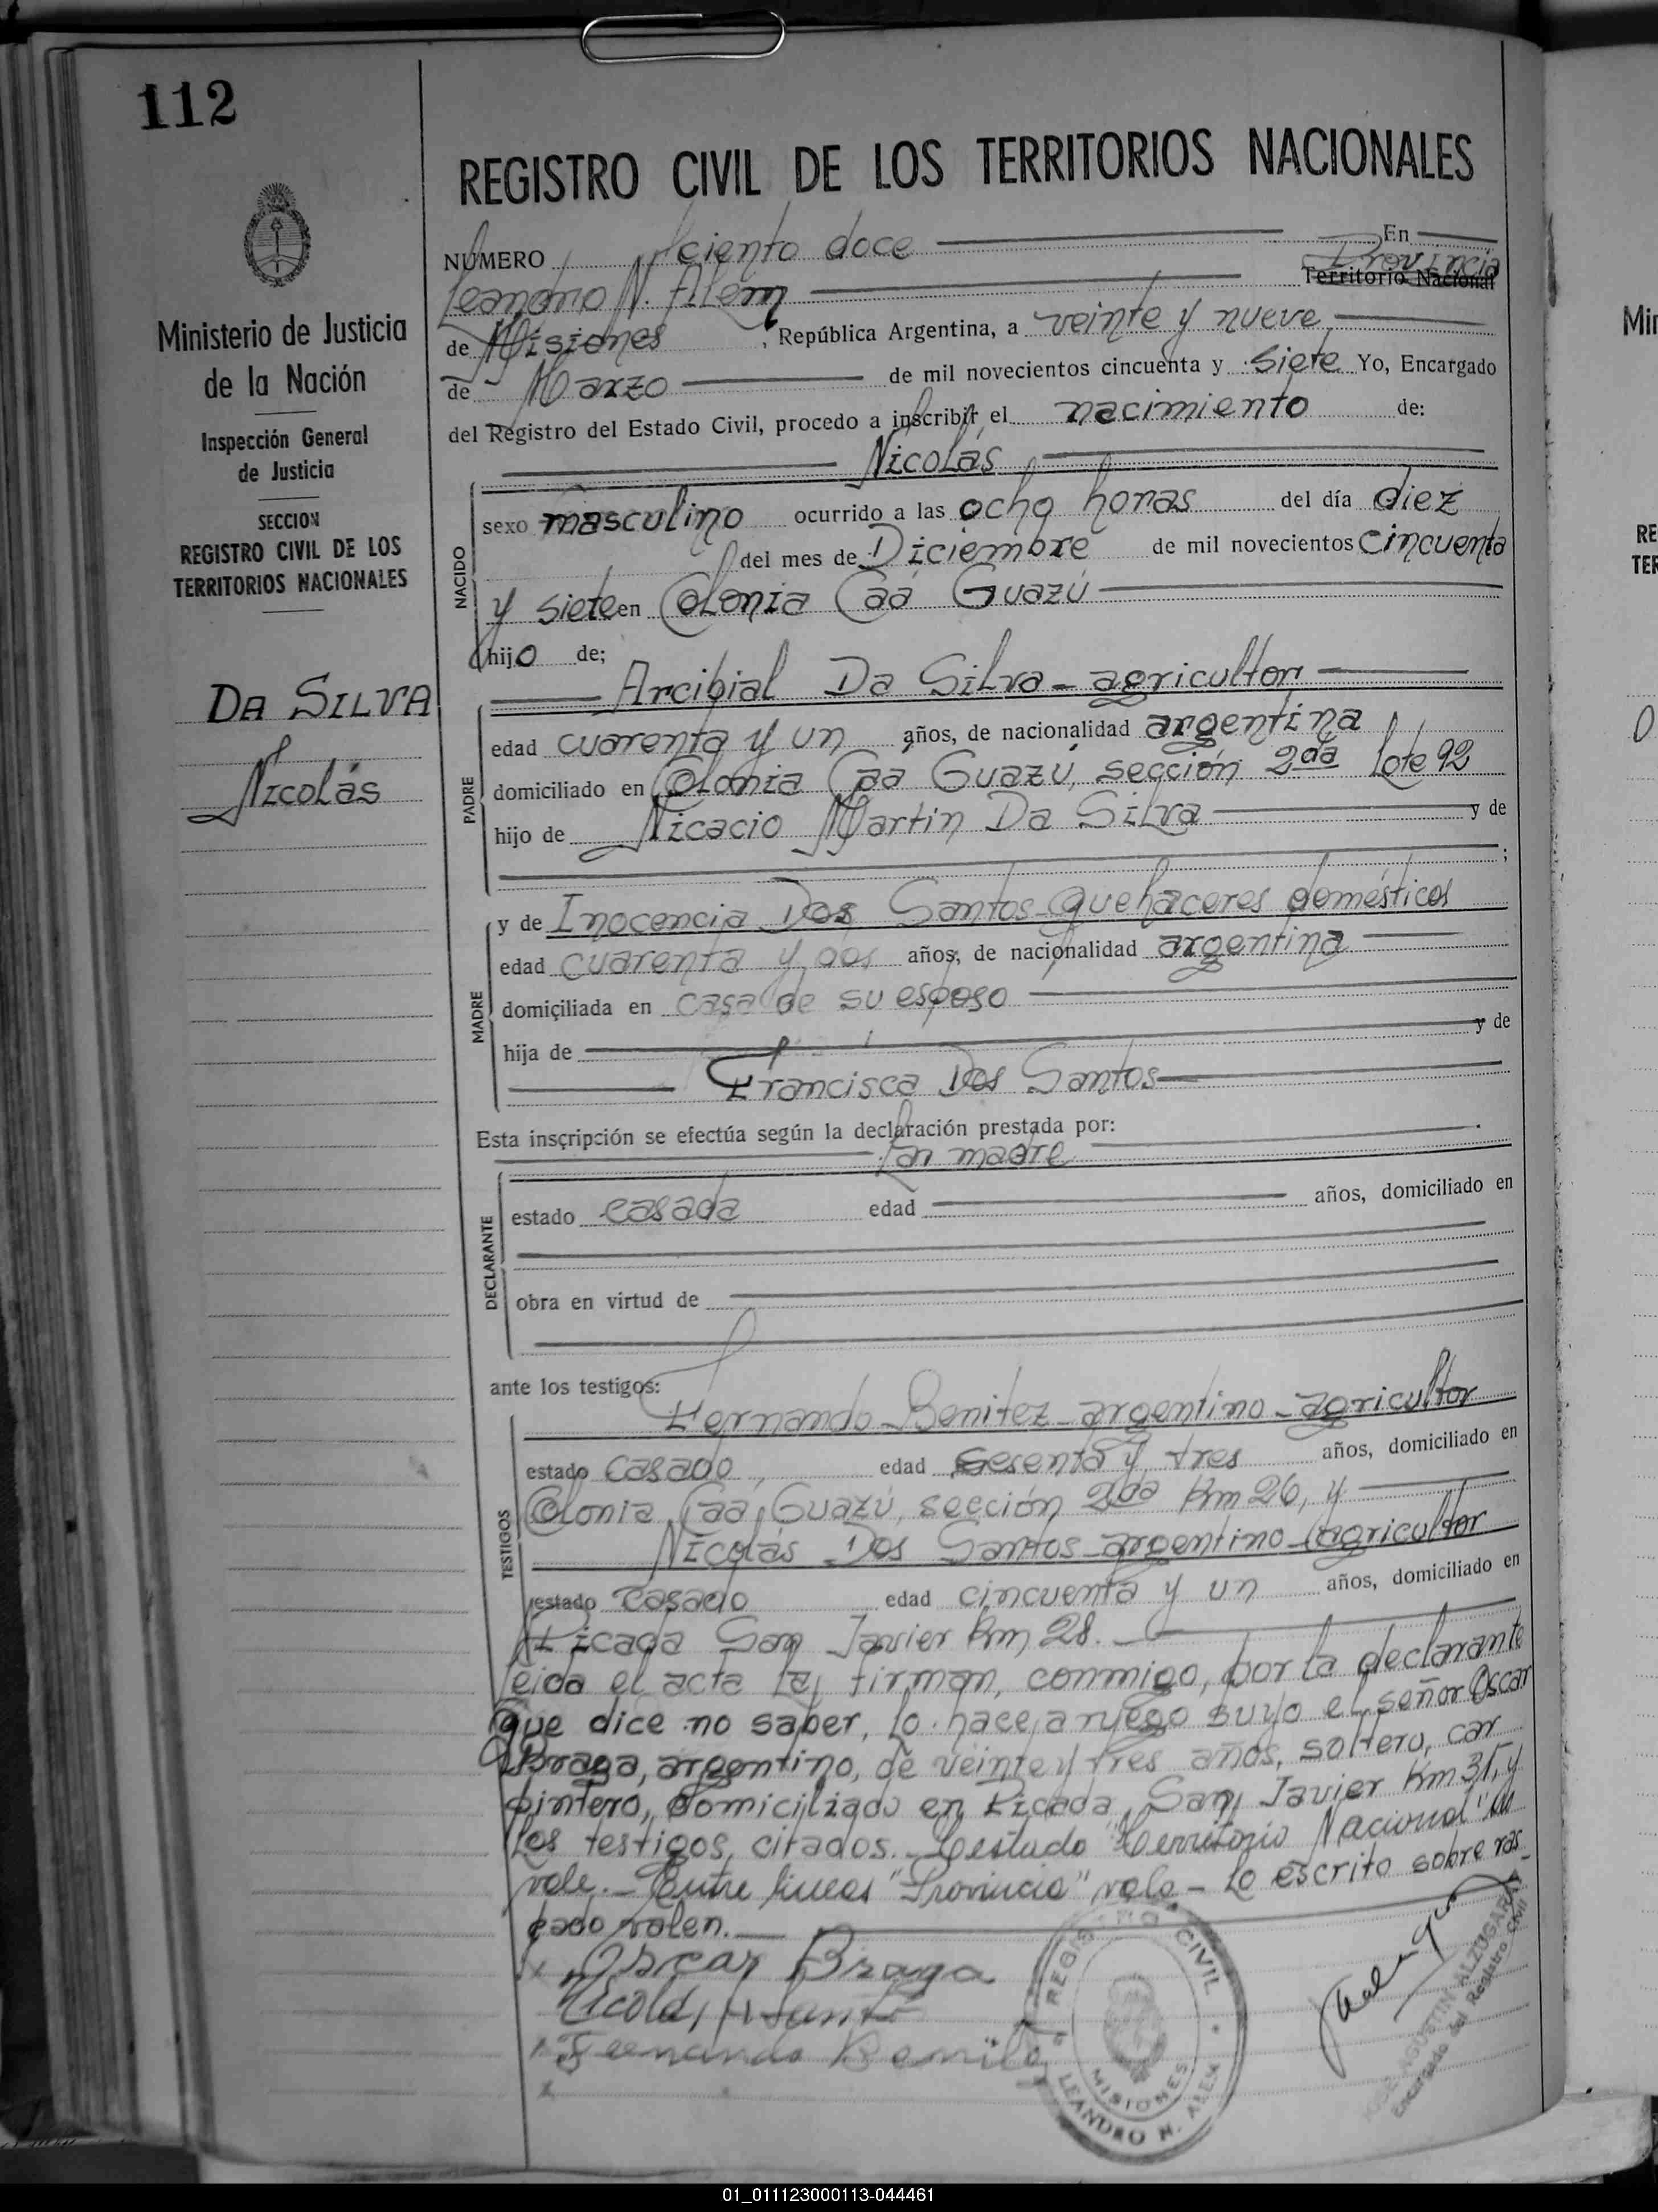 112
REGISTRO CIVIL DE LOS TERRITORIOS NACIONALES
NUMERO ciento doce En
Leandro N. Alem Provincia
Territorio Nacional
de Misiones, República Argentina, a veinte y nueve
de Marzo de mil novecientos cincuenta y siete Yo, Encargado
del Registro del Estado Civil, procedo a inscribir el nacimiento de:
Nicolás
NACIDO
sexo masculino ocurrido a las ocho horas del día diez
del mes de Diciembre de mil novecientos cincuenta
y siete en Colonia Caá Guazú
hijo de;
Arcibial Da Silva - agricultor
PADRE
edad cuarenta y un años, de nacionalidad argentina
domiciliado en Colonia Caá Guazú, sección 2da Lote 92
hijo de Nicacio Martin Da Silva y de
;
MADRE
y de Inocencia Dos Santos - Quehaceres domésticos
edad cuarenta y dos años, de nacionalidad argentina
domiciliada en casa de su esposo
hija de y de
Francisca Dos Santos
Esta inscripción se efectúa según la declaración prestada por:
La madre
DECLARANTE
estado casada edad años, domiciliado en
obra en virtud de
ante los testigos:
TESTIGOS
Fernando Benitez - argentino - agricultor
estado casado, edad sesenta y tres años, domiciliado en
Colonia Caá Guazú, sección 2da Km 26, y
Nicolás Dos Santos - argentino - agricultor
estado casado edad cincuenta y un años, domiciliado en
Picada San Javier Km 28.
leida el acta la firman, conmigo, por la declarante
que dice no saber, lo hace a ruego suyo el señor Oscar
Braga, argentino, de veinte y tres años, soltero, car
pintero, domiciliado en Picada San Javier Km 31, y
los testigos citados. - Testado "Territorio Nacional" no
vale. - Entre lineas "Provincia" vale - Lo escrito sobre ras
pado valen.
x Oscar Braga
x Fernando Benitez
x
REGISTRO CIVIL
MISIONES
LEANDRO N. ALEM
JOSE AGUSTIN ALZUGARAY
Encargado del Registro Civil
Ministerio de Justicia
de la Nación
Inspección General
de Justicia
SECCION
REGISTRO CIVIL DE LOS
TERRITORIOS NACIONALES
DA SILVA
Nicolás
Min
RE
TER
01_011123000113-044461